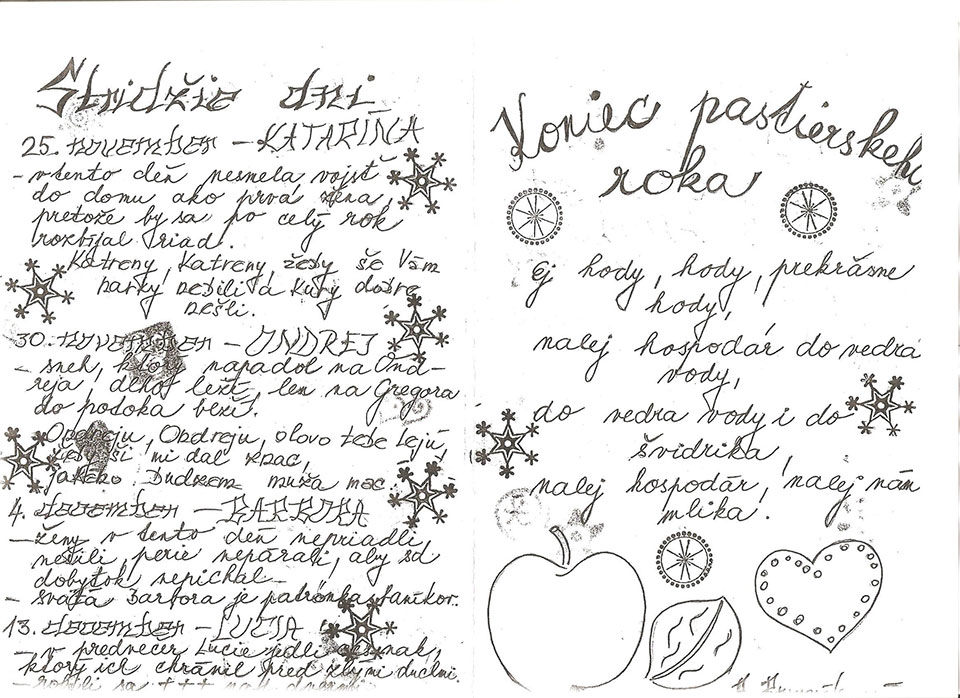 Stridžie dni
25. november - KATARÍNA
- v tento deň nesmela vojsť
do domu ako prvá žena,
pretože by sa po celý rok
rozbíjal riad.
Katreny, Katreny, žeby še Vám
harky nebili a kury dobre
nešli.
30. november - ONDREJ
- sneh, ktorý napadol na Ond-
reja, dlho leží, len na Gregora
do potoka beží.
Ondreju, Ondreju, olovo tebe leju,
mi dal znac,
jakeho budzem muža mac.
4. december - BARBORA
- ženy v tento deň nepriadli,
nešili, perie nepárali, aby sa
dobytok nepichal.
- svätá Barbora je patrónka baníkov.
13. december - LUCIA
- v predvečer Lucie jedli cesnak,
ktorý ich chránil pred zlými duchmi.
- robili sa +++ nad dvermi
Koniec pastierskeho
roka
Ej hody, hody, prekrásne
hody,
nalej hospodár do vedra
vody,
do vedra vody i do
švidrika,
nalej hospodár, nalej nám
mlika.